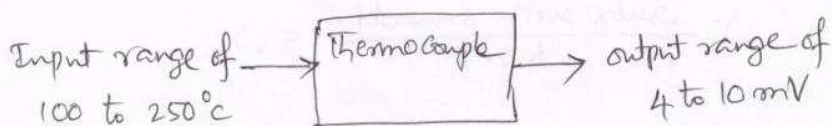 Input range of
100 to 250°c
Thermocouple
output range of
4 to 10 mV